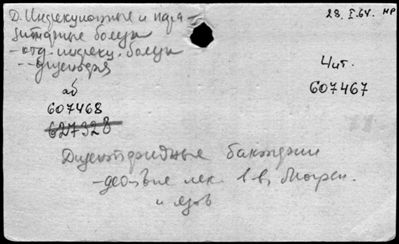 Д. Инфекционные и пара-
зитарные болезн
- отд. инфекц. болезн
-- дизентерия
28. I. 64. НР
Чит.
аб
607467
607468
627328
Дизентерийные бактерии
- действие лек. в-в,
и ядов